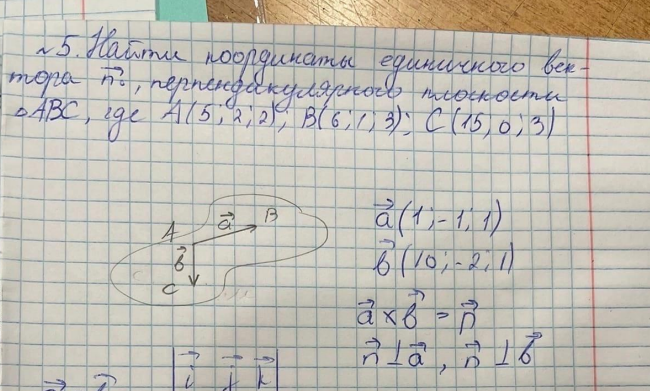 №5. Найти координаты единичного век-
тора n⃗₀, перпендикулярного плоскости
△ABC, где A(5; 2; 2); B(6; 1; 3); C(15; 0; 3)
A a⃗ B
b⃗
C
a⃗(1; -1; 1)
b⃗(10; -2; 1)
a⃗ × b⃗ = n⃗
n⃗ ⊥ a⃗, n⃗ ⊥ b⃗
| i⃗ j⃗ k⃗ |